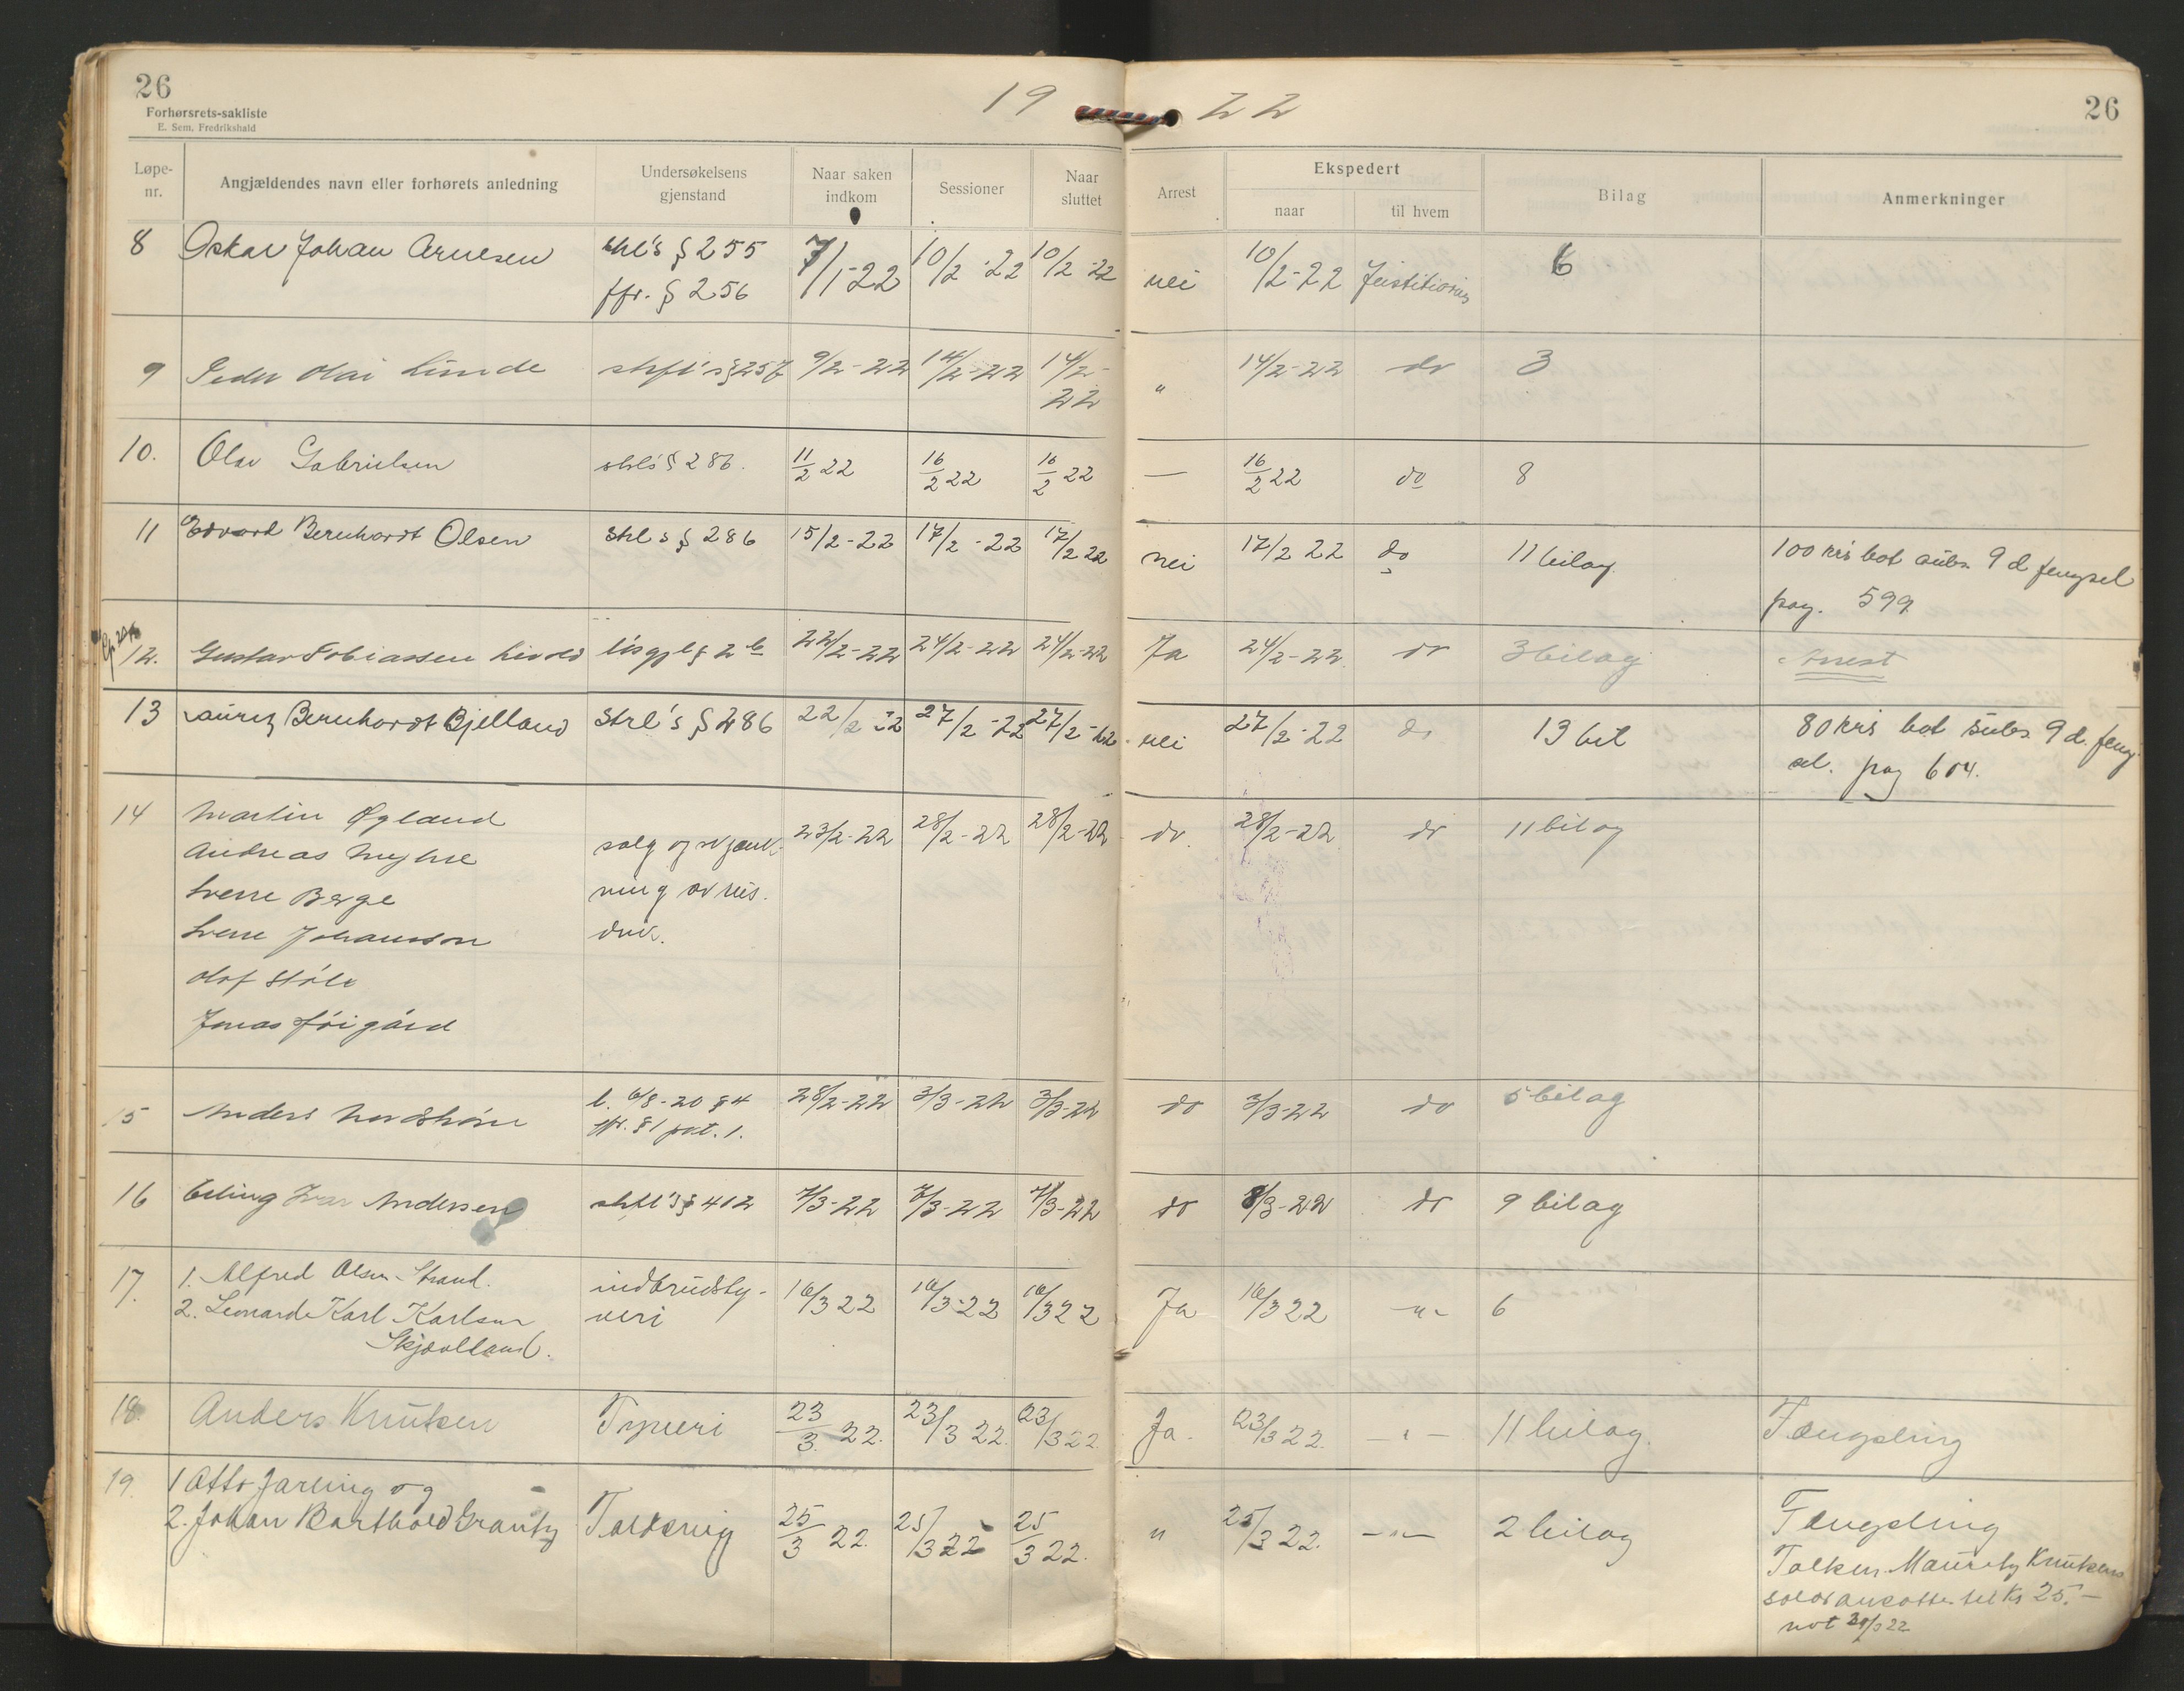 26
Forhørsrets-sakliste
E. Sem, Fredrikshald
19 22
26
Løpe-nr.
Angjældendes navn eller forhørets anledning
Undersøkelsens gjenstand
Naar saken indkom
Sessioner
Naar sluttet
Arrest
Ekspedert
naar
til hvem
Bilag
Anmerkninger
8 Oskar Johan Arnesen strl's § 255 7/1-22 10/2-22 10/2-22 nei 10/2-22 Justitiarius 6
jfr. § 256
9 Peder Olai Lunde § 257 9/2-22 14/2-22 14/2- " 14/2-22 do 3
22
10. Olav Gabrielsen strl's § 286. 11/2 22 16/2 22 16/2 22 — 16/2 22 do 8
11 Edvard Bernhardt Olsen strl's § 286 15/2-22 17/2-22 17/2 22 nei 17/2 22 do 11 bilag 100 kr's bot subs. 9 d fengsel
pag. 599
12. Gustav Tobiassen løsgjl § 2 22/2-22 24/2-22 24/2-22 Ja 24/2-22 do 3 bilag Arrest
13 Lauritz Bernhardt Bjelland Strl's § 286 22/2-22 27/2-22 27/2-22 nei 27/2-22 do 13 bil 80 kr's bot subs. 9 d. feng
sel. pag 604.
14 Martin Øgland 23/2-22 28/2-22 28/2-22 do. 28/2-22 do 11 bilag
Andreas salg og skjænk-
Sverre Berge ning av
Sverre Johansson
Olaf
Jonas
15 Anders l. 6/8-20 § 4 28/2-22 3/3-22 3/3-22 do 3/3-22 do 5 bilag
jfr. § 1 pkt. 1.
16 Erling Ivar Andersen § 412 7/3-22 7/3-22 7/3-22 do 8/3-22 do 9 bilag
17. 1. Alfred Olsen Strand. indbrudsty- 16/3 22 16/3-22 16/3 22 Ja 16/3 22 -"- 6
2. Leonard Karl Karlsen veri
Skjævlland.
18. Anders Knutsen Tyveri 23/3. 22. 23/3 22. 23/3 22 Ja. 23/3 22. -"- 11 bilag. Fængsling
19. 1 Otto Jarling og
2. Johan Barthold Grantz 25/3 22. 25/3 22 25/3 22. " 25/3 22. -"- 2 bilag Fængsling
Tolken Mauritz Knutsens
ansattes til Kr 25.-